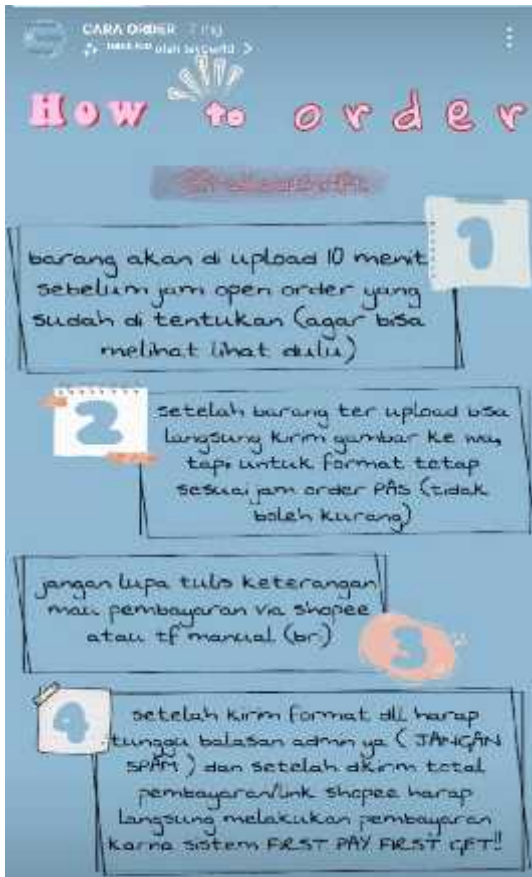 CARA ORDER 7 mg
oleh
How to order
1
barang akan di upload 10 menit
sebelum jam open order yang
sudah di tentukan (agar bisa
melihat lihat dulu)
2
setelah barang ter upload bsa
langsung kirim gambar ke wa,
tapi untuk format tetap
sesuai jam order PAS (tidak
boleh kurang)
jangan lupa tulis keterangan
mau pembayaran via shopee
atau tf manual (bri)
3
4
setelah kirim format dll harap
tunggu balasan admn ya ( JANGAN
SPAM ) dan setelah dkirm total
pembayaran/link shopee harap
langsung melakukan pembayaran
karna sistem FIRST PAY FIRST GET!!